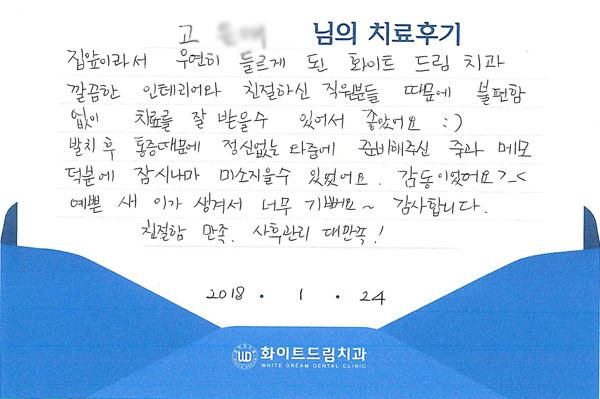 고 님의 치료후기
집앞이라서 우연히 들르게 된 화이트 드림 치과
깔끔한 인테리어와 친절하신 직원분들 때문에 불편함
없이 치료를 잘 받을수 있어서 좋았어요 :)
발치 후 통증때문에 정신없는 와중에 준비해주신 죽과 메모
덕분에 잠시나마 미소지을수 있었어요. 감동이었어요>_<
예쁜 새 이가 생겨서 너무 기뻐요~ 감사합니다.
친절함 만족. 사후관리 대만족!
2018 . 1 . 24
WD 화이트드림치과
WHITE DREAM DENTAL CLINIC